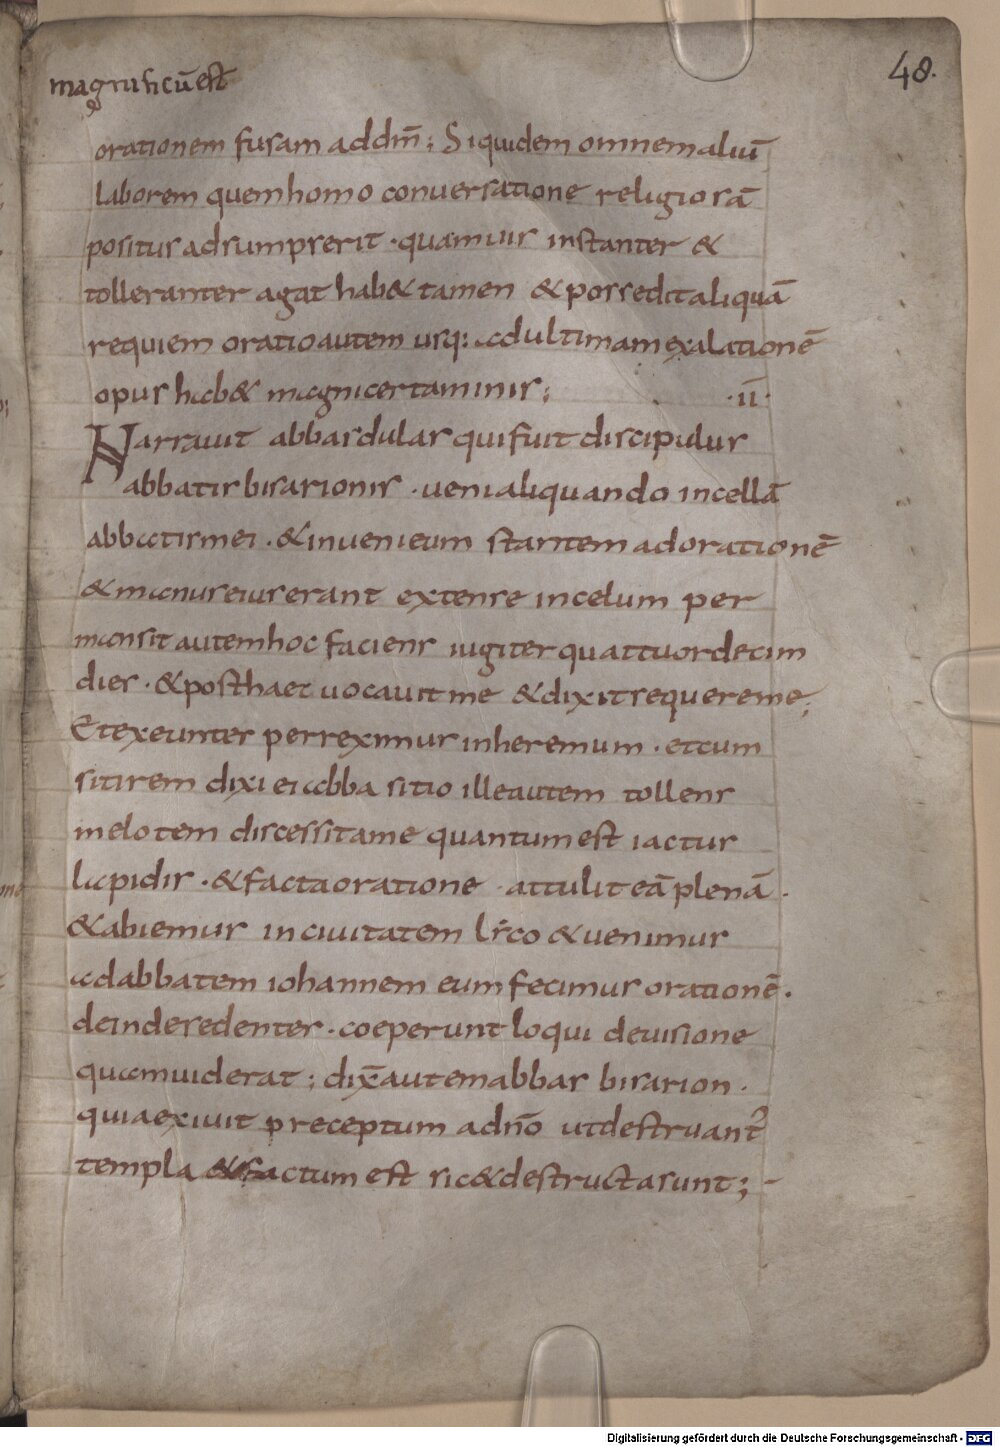 48.
magnificū est
orationem fusam ad dm̄; Siquidem omnem aliū
laborem quem homo conuersatione religiosā
positus adsumpserit · quamuis instanter &
tolleranter agat hab& tamen & possedit aliquā
requiem oratio autem usq: ad ultimam exalationē
opus hab& magni certaminis; ·II·
Narrauit abbas dulas qui fuit discipulus
abbatis bisarionis · ueni aliquando in cellā
abbatis mei · & inueni eum stantem ad orationē
& manus eius erant extense in celum per
mansit autem hoc faciens iugiter quattuordecim
dies · & post haet uocauit me & dixit sequere me;
Et exeuntes perreximus in heremum · et cum
sitirem dixi ei abba sitio ille autem tollens
melotem discessit a me quantum est iactus
lapidis · & facta oratione · attulit eā plenā ·
& abiemus in ciuitatem lyco & uenimus
ad abbatem iohannem eum fecimus orationē ·
deinde sedentes · coeperunt loqui de uisione
quam uiderat; dix̄ autem abbas bisarion ·
quia exiuit preceptum a dn̄o ut destruant̉
templa & factum est sic & destructa sunt; -
Digitalisierung gefördert durch die Deutsche Forschungsgemeinschaft - DFG